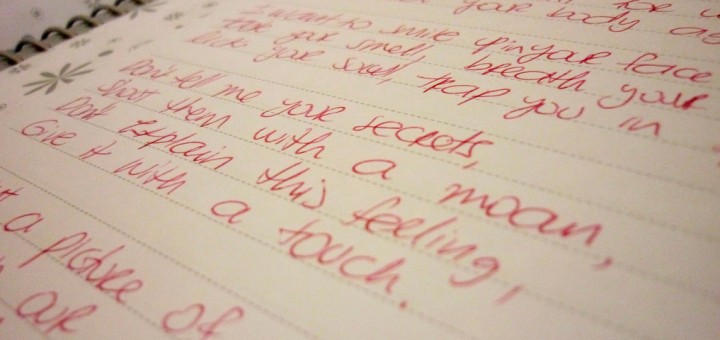 your body
I want to smile your face
your smell, breath your
your soul, trap you in
Don't tell me your secrets,
Shout them with a moan,
Dont Explain this feeling,
Give it with a touch.
a picture of
our